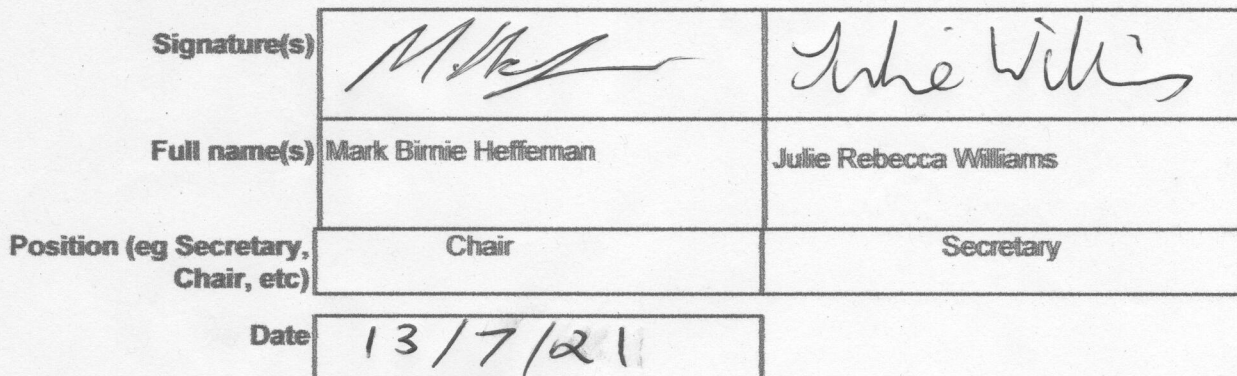 Signature(s)
Julie Williams
Full name(s) Mark Birnie Heffernan Julie Rebecca Williams
Position (eg Secretary, Chair Secretary
Chair, etc)
Date 13/7/21